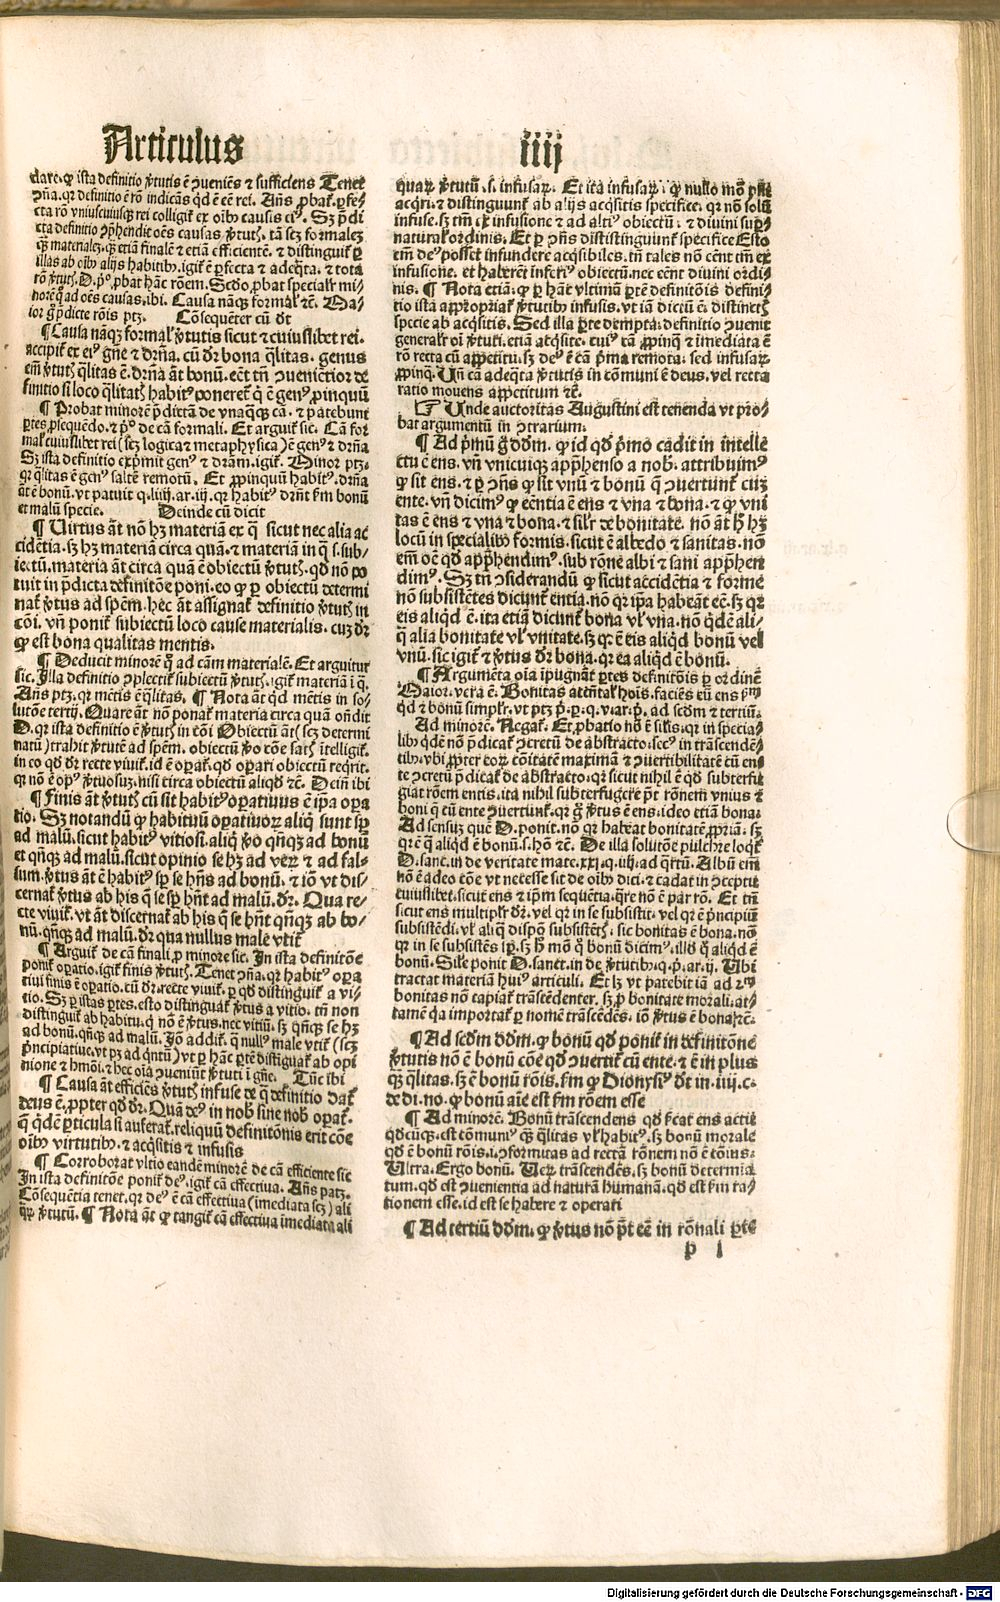 Articulus iiij
clare. ꝙ ista definitio ꝟtutis ē ↄueniēs ⁊ sufficiens Tenet
ↄña. qr definitio ē rō indicās qd ē eē rei. Añs ꝓbat᷑. ꝑfe/
cta rō vniuscuiusqꝫ rei colligit᷑ ex oib᷒ causis ei᷒. Sꝫ p̄di
cta definitio ↄp̄hendit oēs causas ꝟtutꝭ. tā scꝫ formaleꝫ
qꝫ̄ materialeꝫ. qꝫ̄ etiā finalē ⁊ etiā efficientē. ⁊ distinguit᷑ ꝑ
illas ab oib᷒ alijs habitib᷒. igit᷑ ē ꝑfecta ⁊ adeq̄ta. ⁊ tota
rō ꝟtutꝭ. D. pº. ꝓbat hāc rōem. Scdo. ꝓbat specialr̄ mi/
norē q̄ ad oēs causas. ibi. Causa nāqꝫ formal᷑ ⁊ē. Ma/
ior ḡ p̄dicte rōis ptꝫ. Cōsequēter cū dr̄
¶ Causa nāqꝫ formal᷑ ꝟtutis sicut ⁊ cuiuslibet rei.
accipit᷑ ex ei᷒ gn̄e ⁊ dr̄na. cū dr̄ bona q̄litas. genus
em̄ ꝟtutꝭ q̄litas ē. dr̄na āt bonū. eēt tn̄ ↄuenientior de
finitio si loco q̄litatꝭ habit᷒ poneret᷑ q̄ ē gen᷒ ꝓpinquū
¶ Probat minorē p̄dictā de vnaq̄qꝫ cā. ⁊ patebunt
ꝑtes ꝓsequēdo. ⁊ pº de cā formali. Et arguit᷑ sic. Cā for
mal᷑ cuiuslibet rei (scꝫ logica ⁊ metaphysica) ē gen᷒ ⁊ dr̄na
Sꝫ ista definitio exp̄mit gen᷒ ⁊ dr̄am. igit᷑. Minor ptꝫ.
qr q̄litas ē gen᷒ saltē remotū. Et ꝓpinquū habit᷒. dr̄na
āt ē bonū. vt patuit q. liiij. ar. iij. qr habit᷒ dr̄nt᷑ ẜm bonū
et malū specie. Deinde cū dicit
¶ Uirtus āt nō hꝫ materiā ex q̄ sicut nec alia ac
cidētia. sꝫ hꝫ materiā circa quā. ⁊ materiā in q̄ s. sub/
iectū. materia āt circa quā ē obiectū ꝟtutꝭ. qd nō po
tuit in p̄dicta definitōe poni. eo ꝙ ꝑ obiectū determi
nat᷑ ꝟtus ad spēm. hec āt assignat᷑ definitio ꝟtutꝭ in
cōi. vn̄ ponit᷑ subiectū loco cause materialis. cuꝫ dr̄
ꝙ est bona qualitas mentis.
¶ Deducit minorē q̄ ad cām materialē. Et arguitur
sic. Illa definitio ↄplectit᷑ subiectū ꝟtutꝭ. igit᷑ materiā ī q̄.
Añs ptꝫ. qr mētis ē q̄litas. ¶ Nota āt qd mētis in so/
lutōe tertij. Quare āt nō ponat᷑ materia circa quā oñdit
D. qr ista definitio ē ꝟtutꝭ in cōi Obiectū āt (scꝫ determi
natū) trahit ꝟtutē ad spēm. obiectū ꝟo cōe satꝭ ītelligit᷑.
in eo qd dr̄ recte viuit᷑. id ē oꝑat᷑. qd oꝑari obiectū reqrit.
qr nō ē op᷒ ꝟtuosuꝫ. nisi circa obiectū aliqd ⁊ē. Dein̄ ibi
¶ Finis āt ꝟtutꝭ cū sit habit᷒ oꝑatiuus ē ip̄a oꝑa
tio. Sꝫ notandū ꝙ habituū oꝑatiuoꝝ aliq̄ sunt sp̄
ad malū. sicut habit᷒ vitiosi. aliq̄ ꝟo qn̄qꝫ ad bonū
et qn̄qꝫ ad malū. sicut opinio se hꝫ ad veꝝ ⁊ ad fal/
sum. ꝟtus āt ē habit᷒ sp̄ se hn̄s ad bonū. ⁊ iō vt dis/
cernat᷑ ꝟtus ab his q̄ se sp̄ hn̄t ad malū. dr̄. Qua re/
cte viuit᷑. vt āt discernat᷑ ab his q̄ se hn̄t qn̄qꝫ ab bo/
nū. qn̄qꝫ ad malū. dr̄ qua nullus male vtit᷑
¶ Arguit᷑ de cā finali. ꝓ minore sic. In ista definitōe
ponit᷑ oꝑatio. igit᷑ finis ꝟtutꝭ. Tenet ↄña. qr habit᷒ oꝑa
tiui finis ē oꝑatio. cū dr̄. recte viuit᷑. ꝑ qd distinguit᷑ a vi/
tio. Sꝫ ꝑ istas ꝑtes. esto distinguat᷑ ꝟtus a vitio. tn̄ non
distinguit᷑ ab habitu. q̄ nō ē ꝟtus. nec vitiū. sꝫ qn̄qꝫ se hꝫ
ad bonū. qn̄qꝫ ad malū. Iō addit᷑. q̄ null᷒ male vtit᷑ (scꝫ
p̄ncipiatiue. vt pꝫ ad q̄ntū) vt ꝑ hāc ꝑtē distīguat᷑ ab opi
nione ⁊ hmōi. ⁊ hec oīa ↄueniūt ꝟtuti ī gn̄e. Tūc ibi
¶ Causa āt efficiēs ꝟtutꝭ infuse de q̄ definitio dat᷑
deus ē. ꝓpter qd dr̄. Quā de᷒ in nob̄ sine nob̄ oꝑat᷑.
q̄ qdē ꝑticula si auferat᷑. reliquū definitōnis erit cōe
oib᷒ virtutib᷒. ⁊ acq̄sitis ⁊ infusis
¶ Corroborat vltio eandē minorē de cā efficiente sic
In ista definitōe ponit᷑ de᷒. igit᷑ cā effectiua. Añs patꝫ.
Cōsequētia tenet. qr de᷒ ē cā effectiua (imediata scꝫ) ali
q̄ꝝ ꝟtutū. ¶ Nota āt ꝙ tangit᷑ cā effectiua īmediata ali
quaꝝ ꝟtutū. s. infusaꝝ. Et ita infusaꝝ. ꝙ nullo mō pn̄t
acqri. ⁊ distinguunt᷑ ab alijs acq̄sitis specifice. qr nō solū
infuse. sꝫ tm̄ ex infusione ⁊ ad alti᷒ obiectū. ⁊ diuini suꝑ/
naturalꝭ ordinis. Et ꝑ ↄñs dististinguunt᷑ specifice Esto
em̄ de᷒ posset infundere acq̄sibiles. tn̄ tales nō eēnt tm̄ ex
infusione. et haberēt inferi᷒ obiectū. nec eēnt diuini ordi/
nis. ¶ Nota etiā. ꝙ ꝑ hāc vltimā ꝑtē definitōis defini/
tio ista appropriat᷑ ꝟtutib᷒ infusis. vt iā dictū ē. distinctꝭ
specie ab acq̄sitis. Sed illa ꝑte dempta. definitio ↄuenit
generalr̄ oī ꝟtuti. etiā acq̄site. cui᷒ cā ꝓpinq̄ ⁊ imediata ē
rō recta cū appetitu. sꝫ de᷒ ē cā p̄ma remota. sed infusaꝝ
ꝓpinq̄. Un̄ cā adeq̄ta ꝟtutis in cōmuni ē deus. vel recta
ratio mouens appetitum ⁊ē.
☞ Unde auctoritas Augustini est tenenda vt pro/
bat argumentū in ↄtrarium.
¶ Ad p̄mū ḡ ddm̄. ꝙ id qd p̄mo cadit in intelle
ctu ē ens. vn̄ vnicuiqꝫ app̄henso a nob̄. attribuim᷒
ꝙ sit ens. ⁊ ꝑ ↄñs ꝙ sit vnū ⁊ bonū q̄ ↄuertunt᷑ cuꝫ
ente. vn̄ dicim᷒ ꝙ eēntia ē ens ⁊ vna ⁊ bona. ⁊ ꝙ vni
tas ē ens ⁊ vna ⁊ bona. ⁊ silr̄ de bonitate. nō āt h̄ hꝫ
locū in specialib᷒ formis. sicut ē albedo ⁊ sanitas. nō
em̄ oē qd app̄hendim᷒. sub rōne albi ⁊ sani app̄hen
dim᷒. Sꝫ tn̄ ↄsiderandū ꝙ sicut accidētia ⁊ forme
nō subsistētes dicunt᷑ entia. nō qr ip̄a habeāt eē. sꝫ qr
eis aliqd ē. ita etiā dicunt᷑ bona vl̓ vna. nō qdē ali/
q̄ alia bonitate vl̓ vnitate. sꝫ qr ē eis aliqd bonū vel
vnū. sic igit᷑ ⁊ ꝟtus dr̄ bona. qr ea aliqd ē bonū.
¶ Argumēta oīa īpugnāt ꝑtes definitōis ꝑ ordinē
Maior. vera ē. Bonitas attn̄tal᷑ hois. faciēs eū ens pm̄
qd ⁊ bonū simplr̄. vt ptꝫ p̄. p. q. v. ar. p̄. ad scdm ⁊ tertiū.
Ad minorē. Negat᷑. Et ꝓbatio nō ē silis. qr in specia/
lib᷒ qdē nō p̄dicat᷑ ↄcretū de abstracto. sec᷒ in trāscendē/
tib᷒. vbi ꝓpter eoꝝ cōitatē maximā ⁊ ↄuertibilitatē cū en
te ↄcretū p̄dicat᷑ de abstracto. qr sicut nihil ē qd subterfu
giat rōem entis. ita nihil subterfugere pt̄ rōnem vnius ⁊
boni q̄ cū ente ↄuertunt᷑. qr ḡ ꝟtus ē ens. ideo etiā bona.
Ad sensuꝫ quē D. ponit. nō qr habeat bonitatē ꝓpriā. sꝫ
qr ē q̄ aliqd ē bonū. s. hō ⁊ē. De illa solutōe pulchre loqt᷑
D. sanc. in de veritate mate. xxj. q. iiij. ad q̄rtū. Albū em̄
nō ē adeo cōe vt necesse sit de oib᷒ dici. ⁊ cadat in ↄceptū
cuiuslibet. sicut ens ⁊ ip̄m seq̄ntia. q̄re nō ē par rō. Et tn̄
sicut ens multiplr̄ dr̄. vel qr in se subsistit. vel qr ē p̄ncipiū
subsistēdi. vl̓ aliq̄ dispō subsistētꝭ. sic bonitas ē bona. nō
qr in se subsistēs ip̄. sꝫ h̄ mō q̄ bonū dicim᷒. illd̓ q̄ aliqd ē
bonū. Sile ponit D. sanct. in de ꝟtutib᷒. q. p̄. ar. ij. Ubi
tractat materiā hui᷒ articuli. Et lꝫ vt patebit iā ad 2m
bonitas nō capiat᷑ trāscēdenter. sꝫ ꝓ bonitate morali. at/
tamē q̄a importat᷑ ꝑ nomē trāscēdēs. iō ꝟtus ē bona ⁊ē.
¶ Ad scdm ddm̄. ꝙ bonū qd ponit᷑ in definitōne
ꝟtutis nō ē bonū cōe qd ↄuertit᷑ cū ente. ⁊ ē in plus
qꝫ̄ q̄litas. sꝫ ē bonū rōis. ẜm ꝙ Dionysi᷒ dt̄ in. iiij. c.
de di. no. ꝙ bonū aīe est ẜm rōem esse
¶ Ad minorē. Bonū trāscendens qd ẜcat ens actū
qdcūqꝫ. est cōmuni᷒ qꝫ̄ q̄litas vl̓ habit᷒. sꝫ bonū morale
qd ē bonū rōis. i. ↄformitas ad rectā rōnem nō ē cōius.
Ultra. Ergo bonū. Ueꝝ trāscendēs. sꝫ bonū determia/
tum. qd est ↄuenientia ad naturā humanā. qd est ẜm ra/
tionem esse. id est se habere ⁊ operari
¶ Ad tertiū ddm̄. ꝙ ꝟtus nō pt̄ eē in rōnali ꝑte
p j
Digitalisierung gefördert durch die Deutsche Forschungsgemeinschaft - DFG